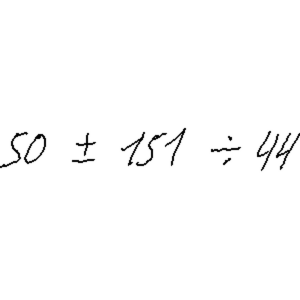 50 ± 151 ÷ 44